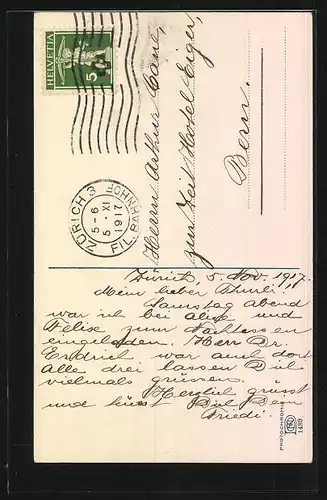 HELVETIA
5
ZÜRICH 3
BAHNH.
FIL.
5-6
5. XI
1917
Herrn Arthur
zur Zeit Hotel Eiger,
Bern.
Zürich, 5. Nov. 1917.
Mein lieber Thurli!
Samstag abend
war ich bei Alice und
Felise zum Nachtessen
eingeladen. Herr Dr.
war auch dort
Alle drei lassen Dich
vielmals grüssen.
Herzlich grüsst
und küsst Dich Dein
Friedi.
PHOTOCHROM
1439